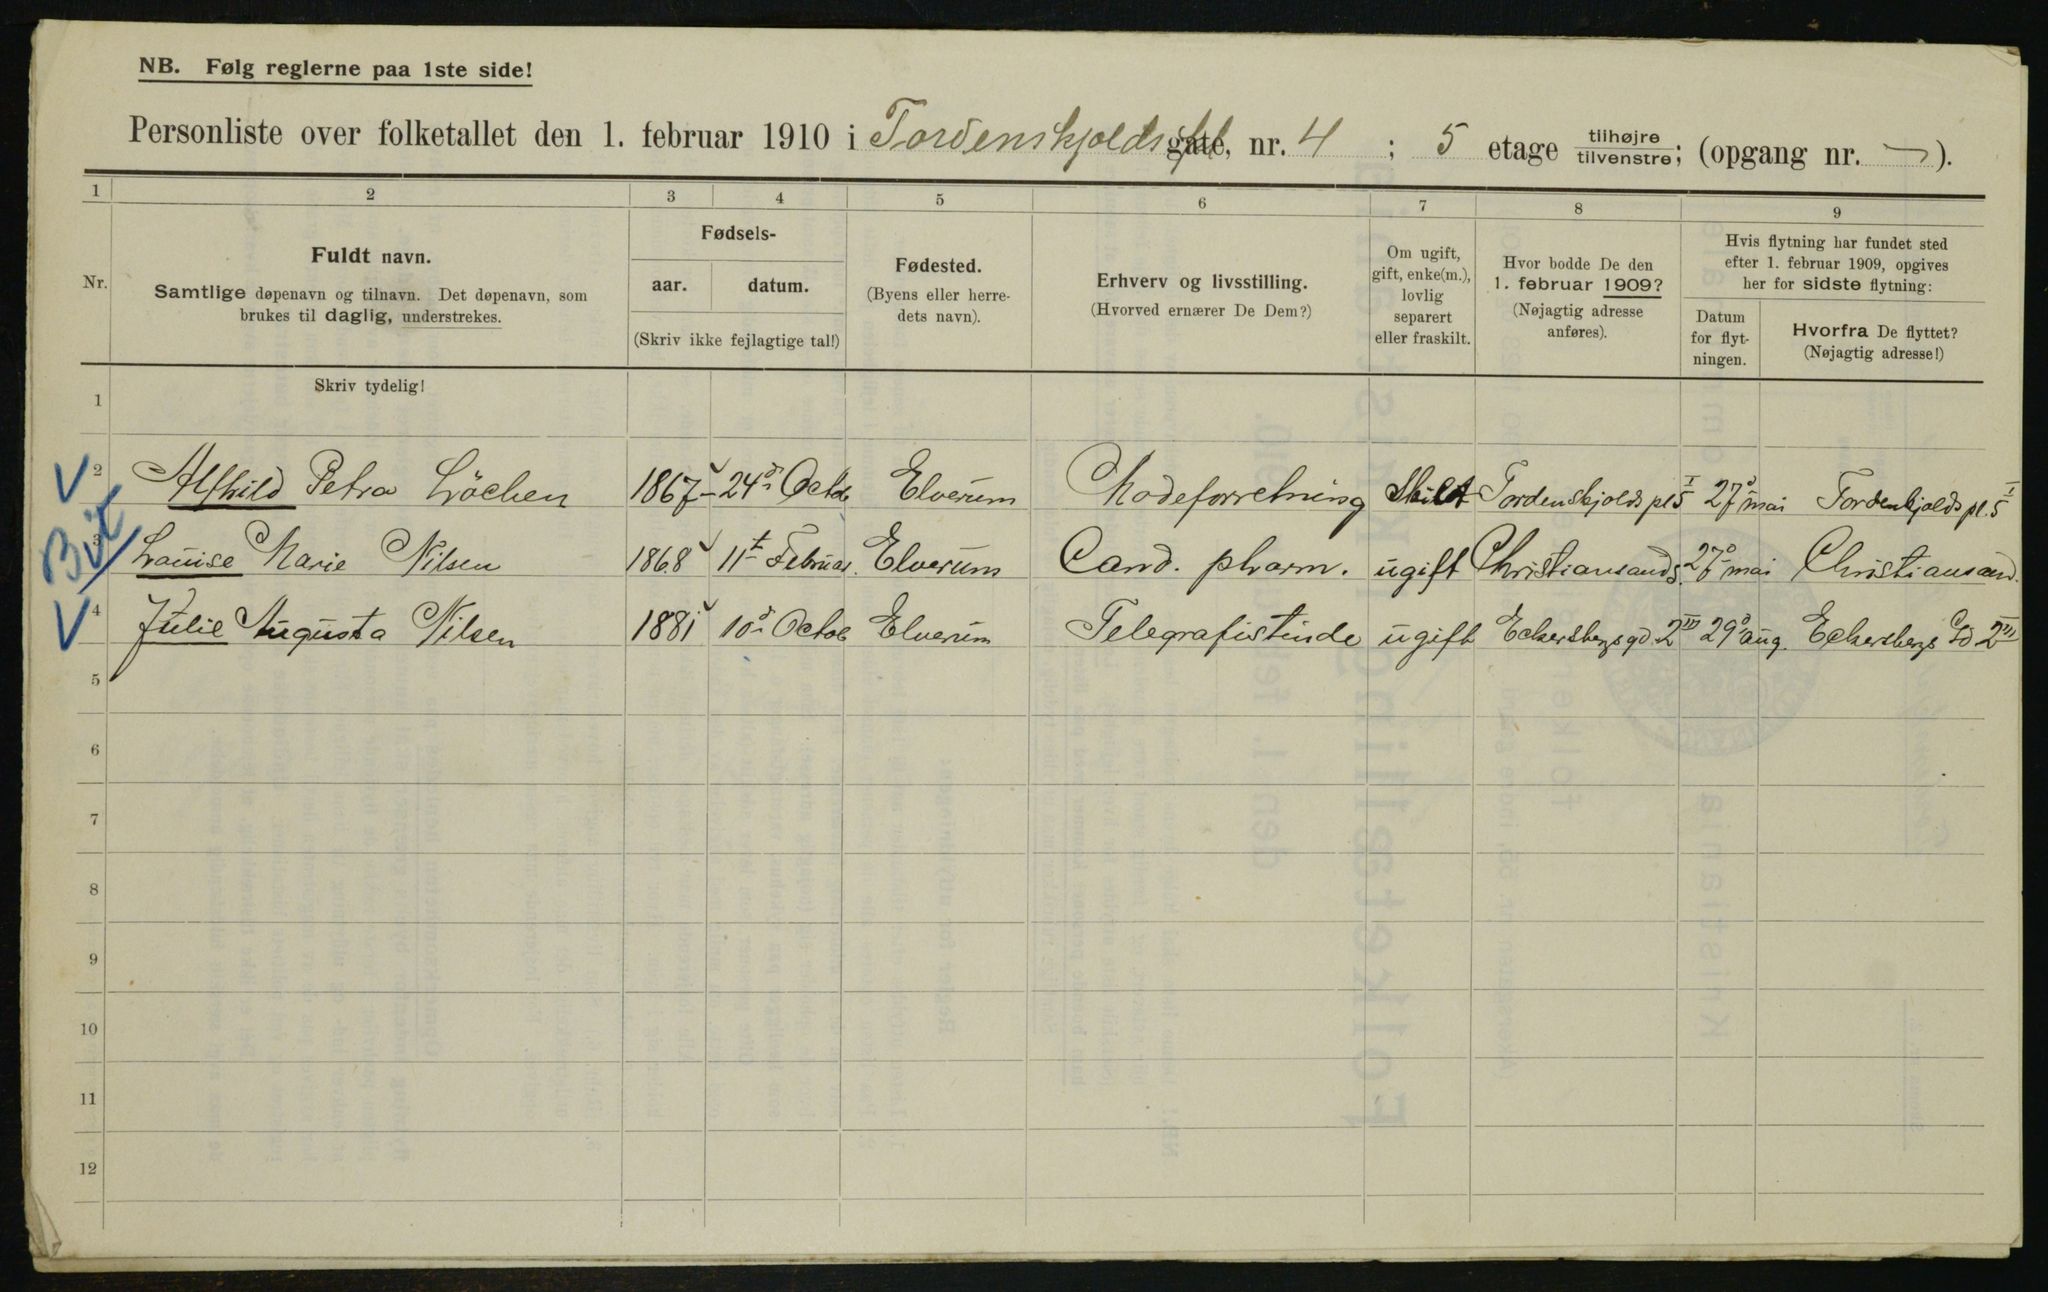 NB. Følg reglerne paa 1ste side!
Personliste over folketallet den 1. februar 1910 i Tordenskjolds pl gate, nr. 4 ; 5 etage tilhøjre tilvenstre; (opgang nr. — ).
1 2 3 4 5 6 7 8 9
Nr.
Fuldt navn.
Samtlige døpenavn og tilnavn. Det døpenavn, som
brukes til daglig, understrekes.
Fødsels-
aar. datum.
(Skriv ikke fejlagtige tal!)
Fødested.
(Byens eller herre-
dets navn).
Erhverv og livsstilling.
(Hvorved ernærer De Dem?)
Om ugift,
gift, enke(m.),
lovlig
separert
eller fraskilt.
Hvor bodde De den
1. februar 1909?
(Nøjagtig adresse
anføres).
Hvis flytning har fundet sted
efter 1. februar 1909, opgives
her for sidste flytning:
Datum
for flyt-
ningen.
Hvorfra De flyttet?
(Nøjagtig adresse!)
Skriv tydelig!
1
2 Alfhild Petra Løchen 1867 24d Octob Elverum Modeforretning Skilt Tordenskjolds pl 5 I 27d mai Tordenskjolds pl. 5 I
3 Louise Marie Nilsen 1868 11t Februar Elverum Cand. pharm. ugift Christiansand S. 27d mai Christiansand.
4 Julie Augusta Nilsen 1881 10d Octob Elverum Telegrafistinde ugift Eckersbergs gd. 2 III 29d aug. Eckersbergs Gd 2 III
5
6
7
8
9
10
11
12